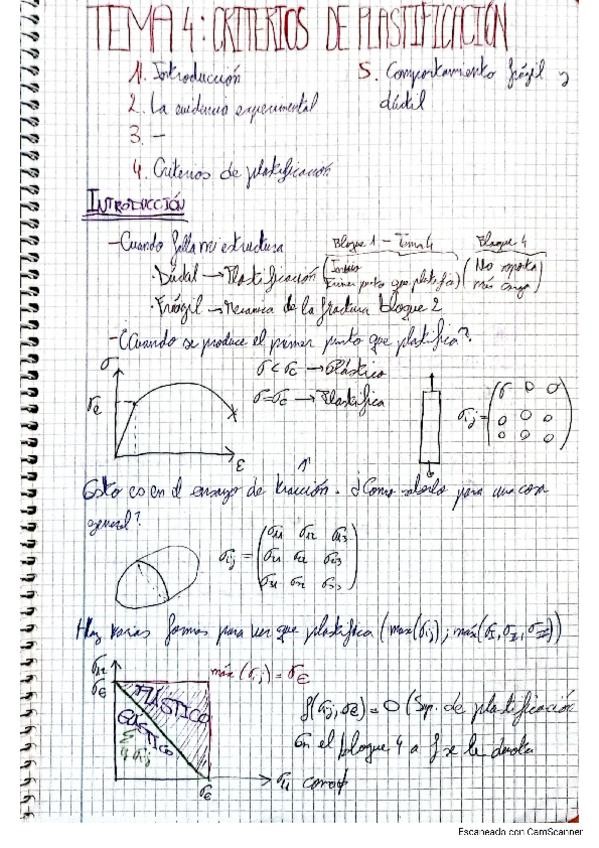 TEMA 4: CRITERIOS DE PLASTIFICACIÓN
1. Introducción
2. La evidencia experimental
3. —
4. Criterios de plastificación
5. Comportamiento frágil y
dúctil
INTRODUCCIÓN
- Cuando falla mi estructura
Bloque 1 - Tema 4
Bloque 4
· Dúctil → Plastificación (Primer punto que plastifica) (No soporta más carga)
· Frágil → Mecánica de la fractura bloque 2
- ¿Cuando se produce el primer punto que plastifica?
σ
σe
ε
σ < σe → Elástico
σ = σe → Plastifica
σij = (σ 0 0
0 0 0
0 0 0)
Esto es en el ensayo de tracción. ¿Como saberlo para una cosa
general?
σij = (σ11 σ12 σ13
σ21 σ22 σ23
σ31 σ32 σ33)
Hay varias formas para ver que plastifica (max(σij); máx(σI, σII, σIII))
σe
máx (σij) = σe
PLÁSTICO
ELÁSTICO
Σ σij
σe
σ11
f(σij, σe) = 0 (Sup. de plastificación
En el bloque 4 a f se le denota
Escaneado con CamScanner